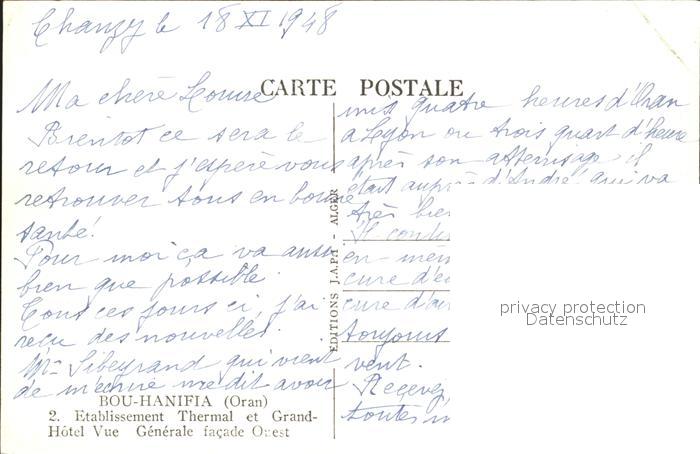 Chanzy le 18 XI 1948
CARTE POSTALE
Ma chère Louise
Bientot ce sera le
retour et j'espère vous
retrouver tous en bonne
santé!
Pour moi ça va aussi
bien que possible.
Tous ces jours ci, j'ai
reçu des nouvelles.
Mr Sibeyrand qui vient
de m'écrire me dit avoir
mis quatre heures d'Oran
a Lyon ou trois quart d'heure
après son atterrisage il
était auprès d'André qui va
très bien
Il
en
cure
cure
toujours
vent.
Recevez
toutes
EDITIONS J.A.P.A - ALGER
privacy protection
Datenschutz
BOU-HANIFIA (Oran)
2. Etablissement Thermal et Grand-
Hôtel Vue Générale façade Ouest